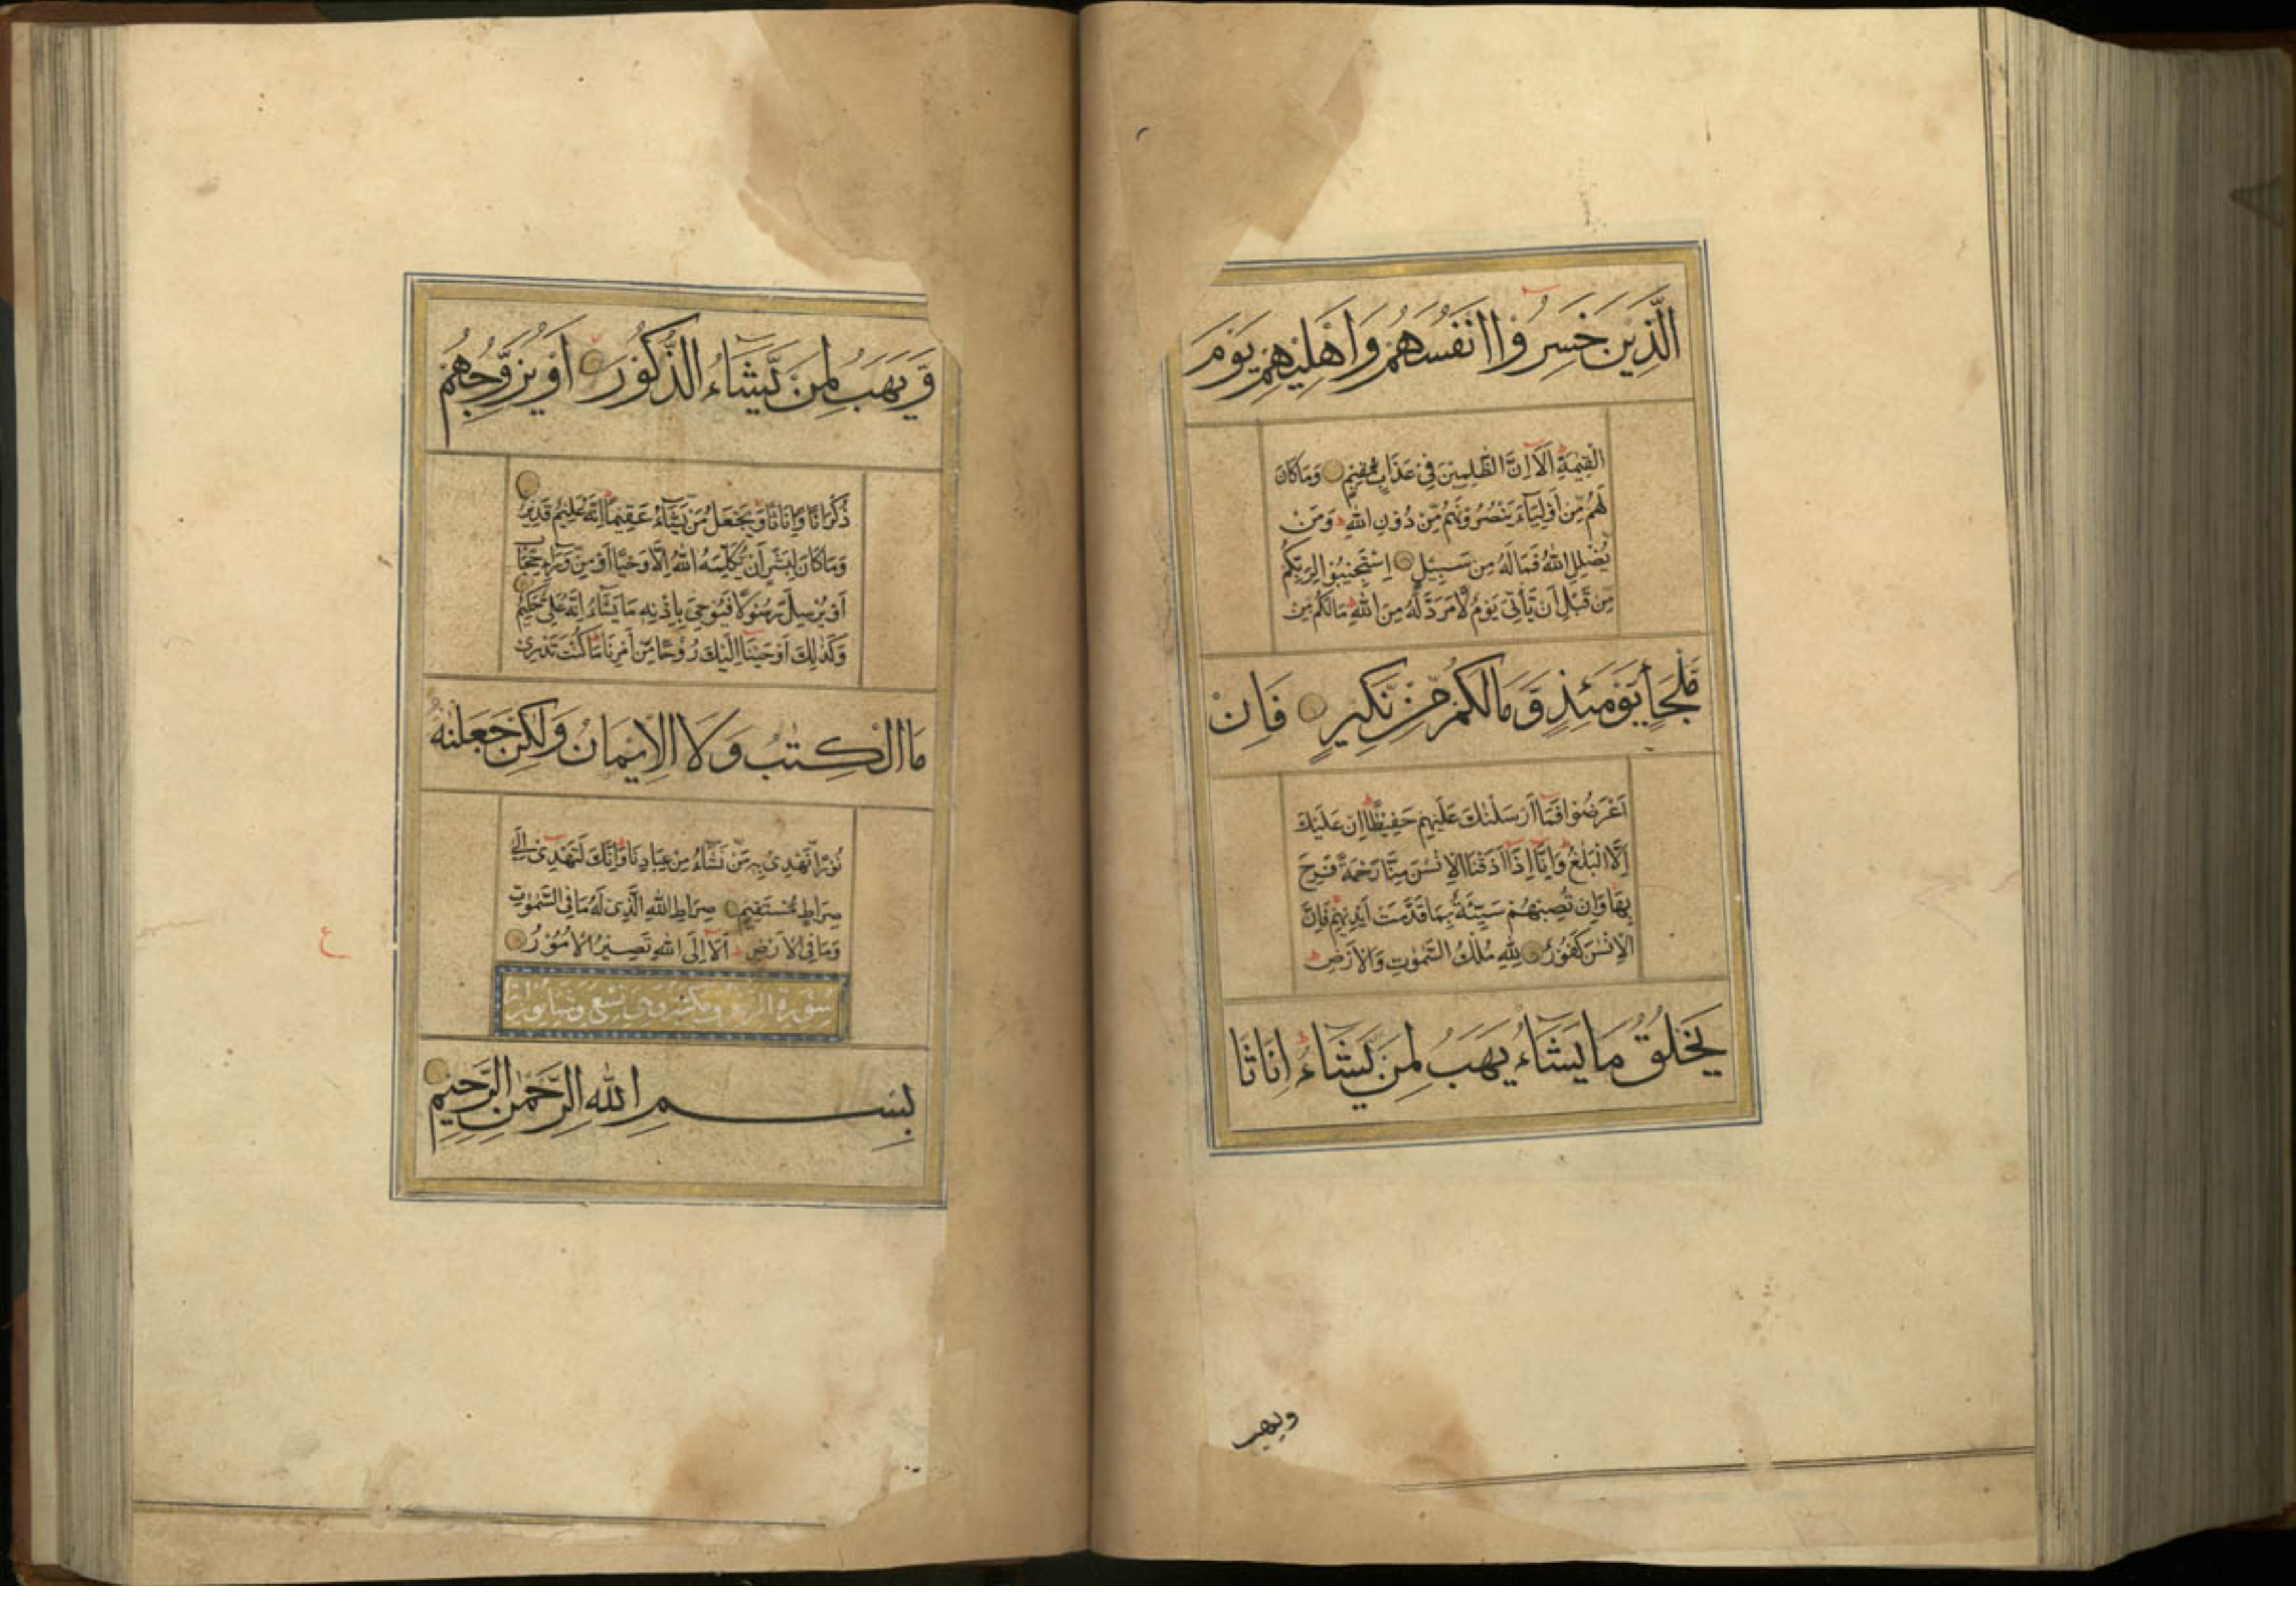 الَّذِيْنَ خَسِرُوْا اَنْفُسَهُمْ وَاَهْلِيْهِمْ يَوْمَ
الْقِيٰمَةِ اَلَا اِنَّ الظّٰلِمِيْنَ فِيْ عَذَابٍ مُّقِيْمٍ وَمَا كَانَ
لَهُمْ مِّنْ اَوْلِيَآءَ يَنْصُرُوْنَهُمْ مِّنْ دُوْنِ اللّٰهِ وَمَنْ
يُّضْلِلِ اللّٰهُ فَمَا لَهُ مِنْ سَبِيْلٍ اِسْتَجِيْبُوْا لِرَبِّكُمْ
مِّنْ قَبْلِ اَنْ يَّأْتِيَ يَوْمٌ لَّا مَرَدَّ لَهُ مِنَ اللّٰهِ مَا لَكُمْ مِّنْ
مَّلْجَأٍ يَّوْمَئِذٍ وَّمَا لَكُمْ مِّنْ نَّكِيْرٍ فَاِنْ
اَعْرَضُوْا فَمَآ اَرْسَلْنٰكَ عَلَيْهِمْ حَفِيْظًا اِنْ عَلَيْكَ
اِلَّا الْبَلٰغُ وَاِنَّآ اِذَآ اَذَقْنَا الْاِنْسٰنَ مِنَّا رَحْمَةً فَرِحَ
بِهَا وَاِنْ تُصِبْهُمْ سَيِّئَةٌ بِمَا قَدَّمَتْ اَيْدِيْهِمْ فَاِنَّ
الْاِنْسٰنَ كَفُوْرٌ لِلّٰهِ مُلْكُ السَّمٰوٰتِ وَالْاَرْضِ
يَخْلُقُ مَا يَشَآءُ يَهَبُ لِمَنْ يَّشَآءُ اِنَاثًا
ويهب
وَّيَهَبُ لِمَنْ يَّشَآءُ الذُّكُوْرَ اَوْ يُزَوِّجُهُمْ
ذُكْرَانًا وَّاِنَاثًا وَيَجْعَلُ مَنْ يَّشَآءُ عَقِيْمًا اِنَّهُ عَلِيْمٌ قَدِيْرٌ
وَمَا كَانَ لِبَشَرٍ اَنْ يُّكَلِّمَهُ اللّٰهُ اِلَّا وَحْيًا اَوْ مِنْ وَّرَآئِ حِجَابٍ
اَوْ يُرْسِلَ رَسُوْلًا فَيُوْحِيَ بِاِذْنِهٖ مَا يَشَآءُ اِنَّهُ عَلِيٌّ حَكِيْمٌ
وَكَذٰلِكَ اَوْحَيْنَآ اِلَيْكَ رُوْحًا مِّنْ اَمْرِنَا مَا كُنْتَ تَدْرِيْ
مَا الْكِتٰبُ وَلَا الْاِيْمَانُ وَلٰكِنْ جَعَلْنٰهُ
نُوْرًا نَّهْدِيْ بِهٖ مَنْ نَّشَآءُ مِنْ عِبَادِنَا وَاِنَّكَ لَتَهْدِيْ اِلٰى
صِرَاطٍ مُّسْتَقِيْمٍ صِرَاطِ اللّٰهِ الَّذِيْ لَهُ مَا فِي السَّمٰوٰتِ
وَمَا فِي الْاَرْضِ اَلَآ اِلَى اللّٰهِ تَصِيْرُ الْاُمُوْرُ
ع
سُوْرَةُ وَهِيَ تِسْعٌ وَثَمَانُوْنَ
بِسْمِ اللّٰهِ الرَّحْمٰنِ الرَّحِيْمِ